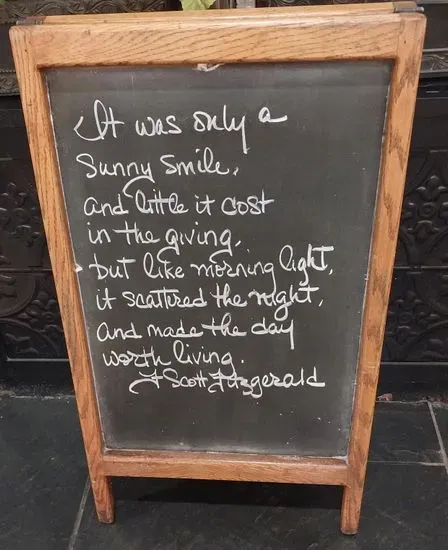 It was only a
Sunny Smile,
and little it cost
in the giving,
but like morning light,
it scattired the night,
and made the day
worth living.
F Scott Fitzgerald